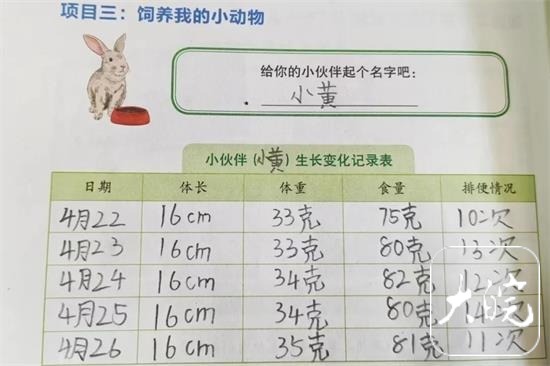 项目三：饲养我的小动物
给你的小伙伴起个名字吧：
小黄
小伙伴（小黄）生长变化记录表
日期 体长 体重 食量 排便情况
4月22 16cm 33克 75克 10次
4月23 16cm 33克 80克 13次
4月24 16cm 34克 82克 12次
4月25 16cm 34克 80克 14次
4月26 16cm 35克 81克 11次
大皖